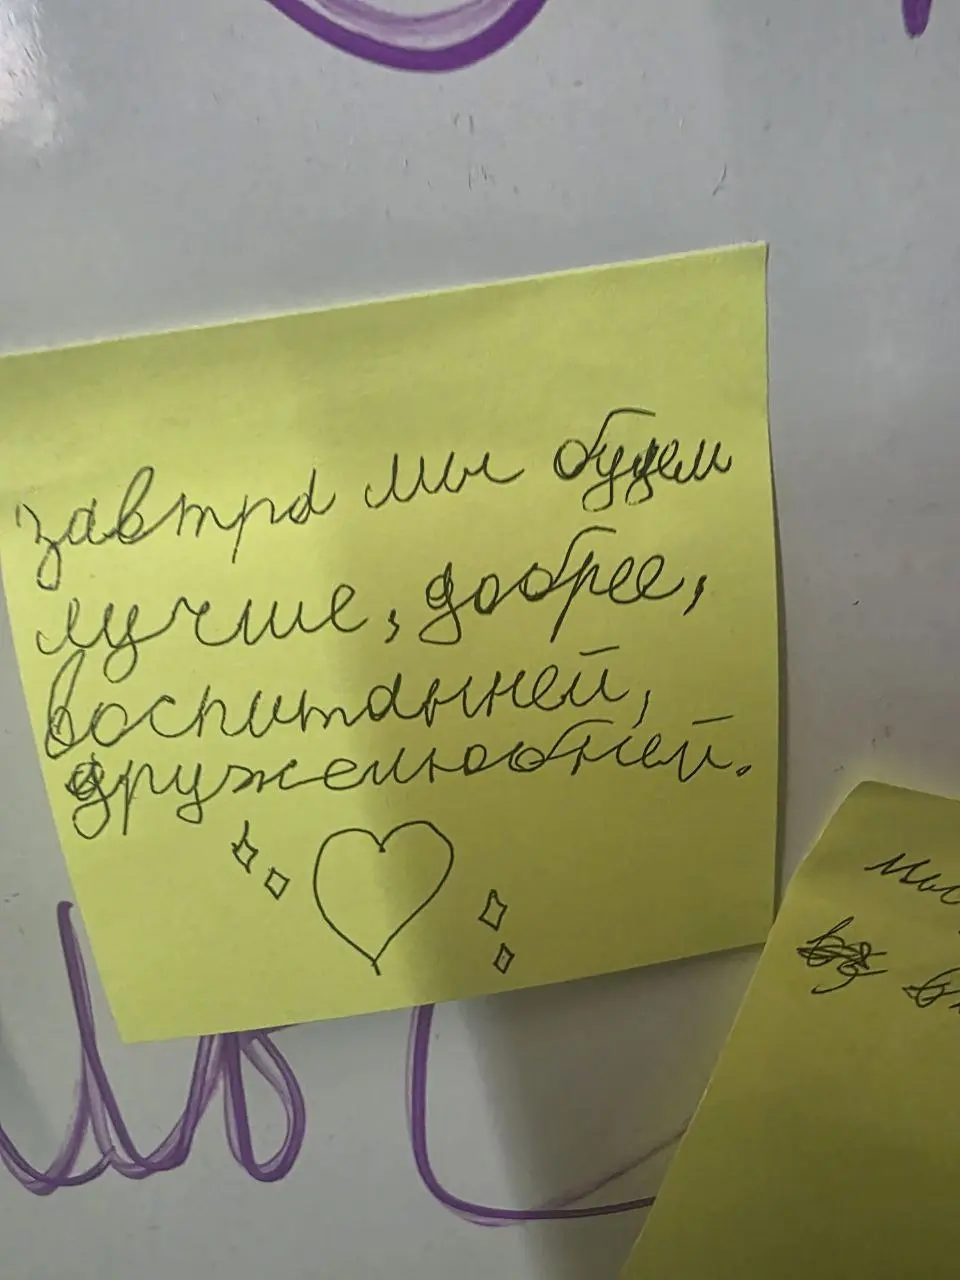 завтра мы будем
лучше, добрее,
воспитанней,
дружелюбней.